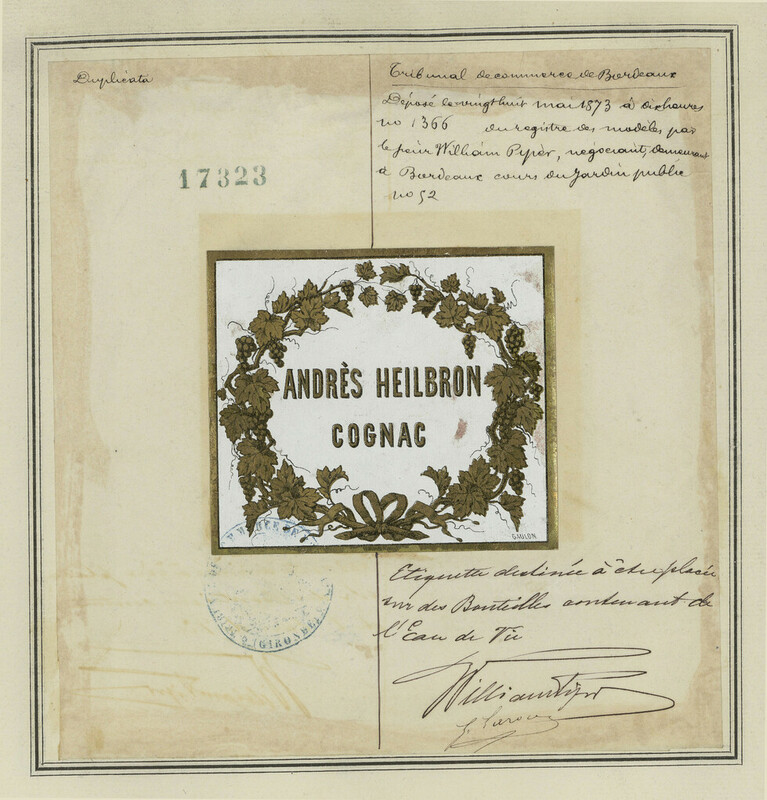 Duplicata
Tribunal de commerce de Bordeaux
Déposé le vingt huit mai 1873 à dix heures
no 1366 du registre des modèles par
le sieur William Pyper, négociant, demeurant
à Bordeaux cours du Jardin public
no 52
17323
ANDRÈS HEILBRON
COGNAC
GAULON
(GIRONDE)
Etiquette destinée à être placée
sur des Bouteilles contenant de
l'Eau de Vie
William Pyper